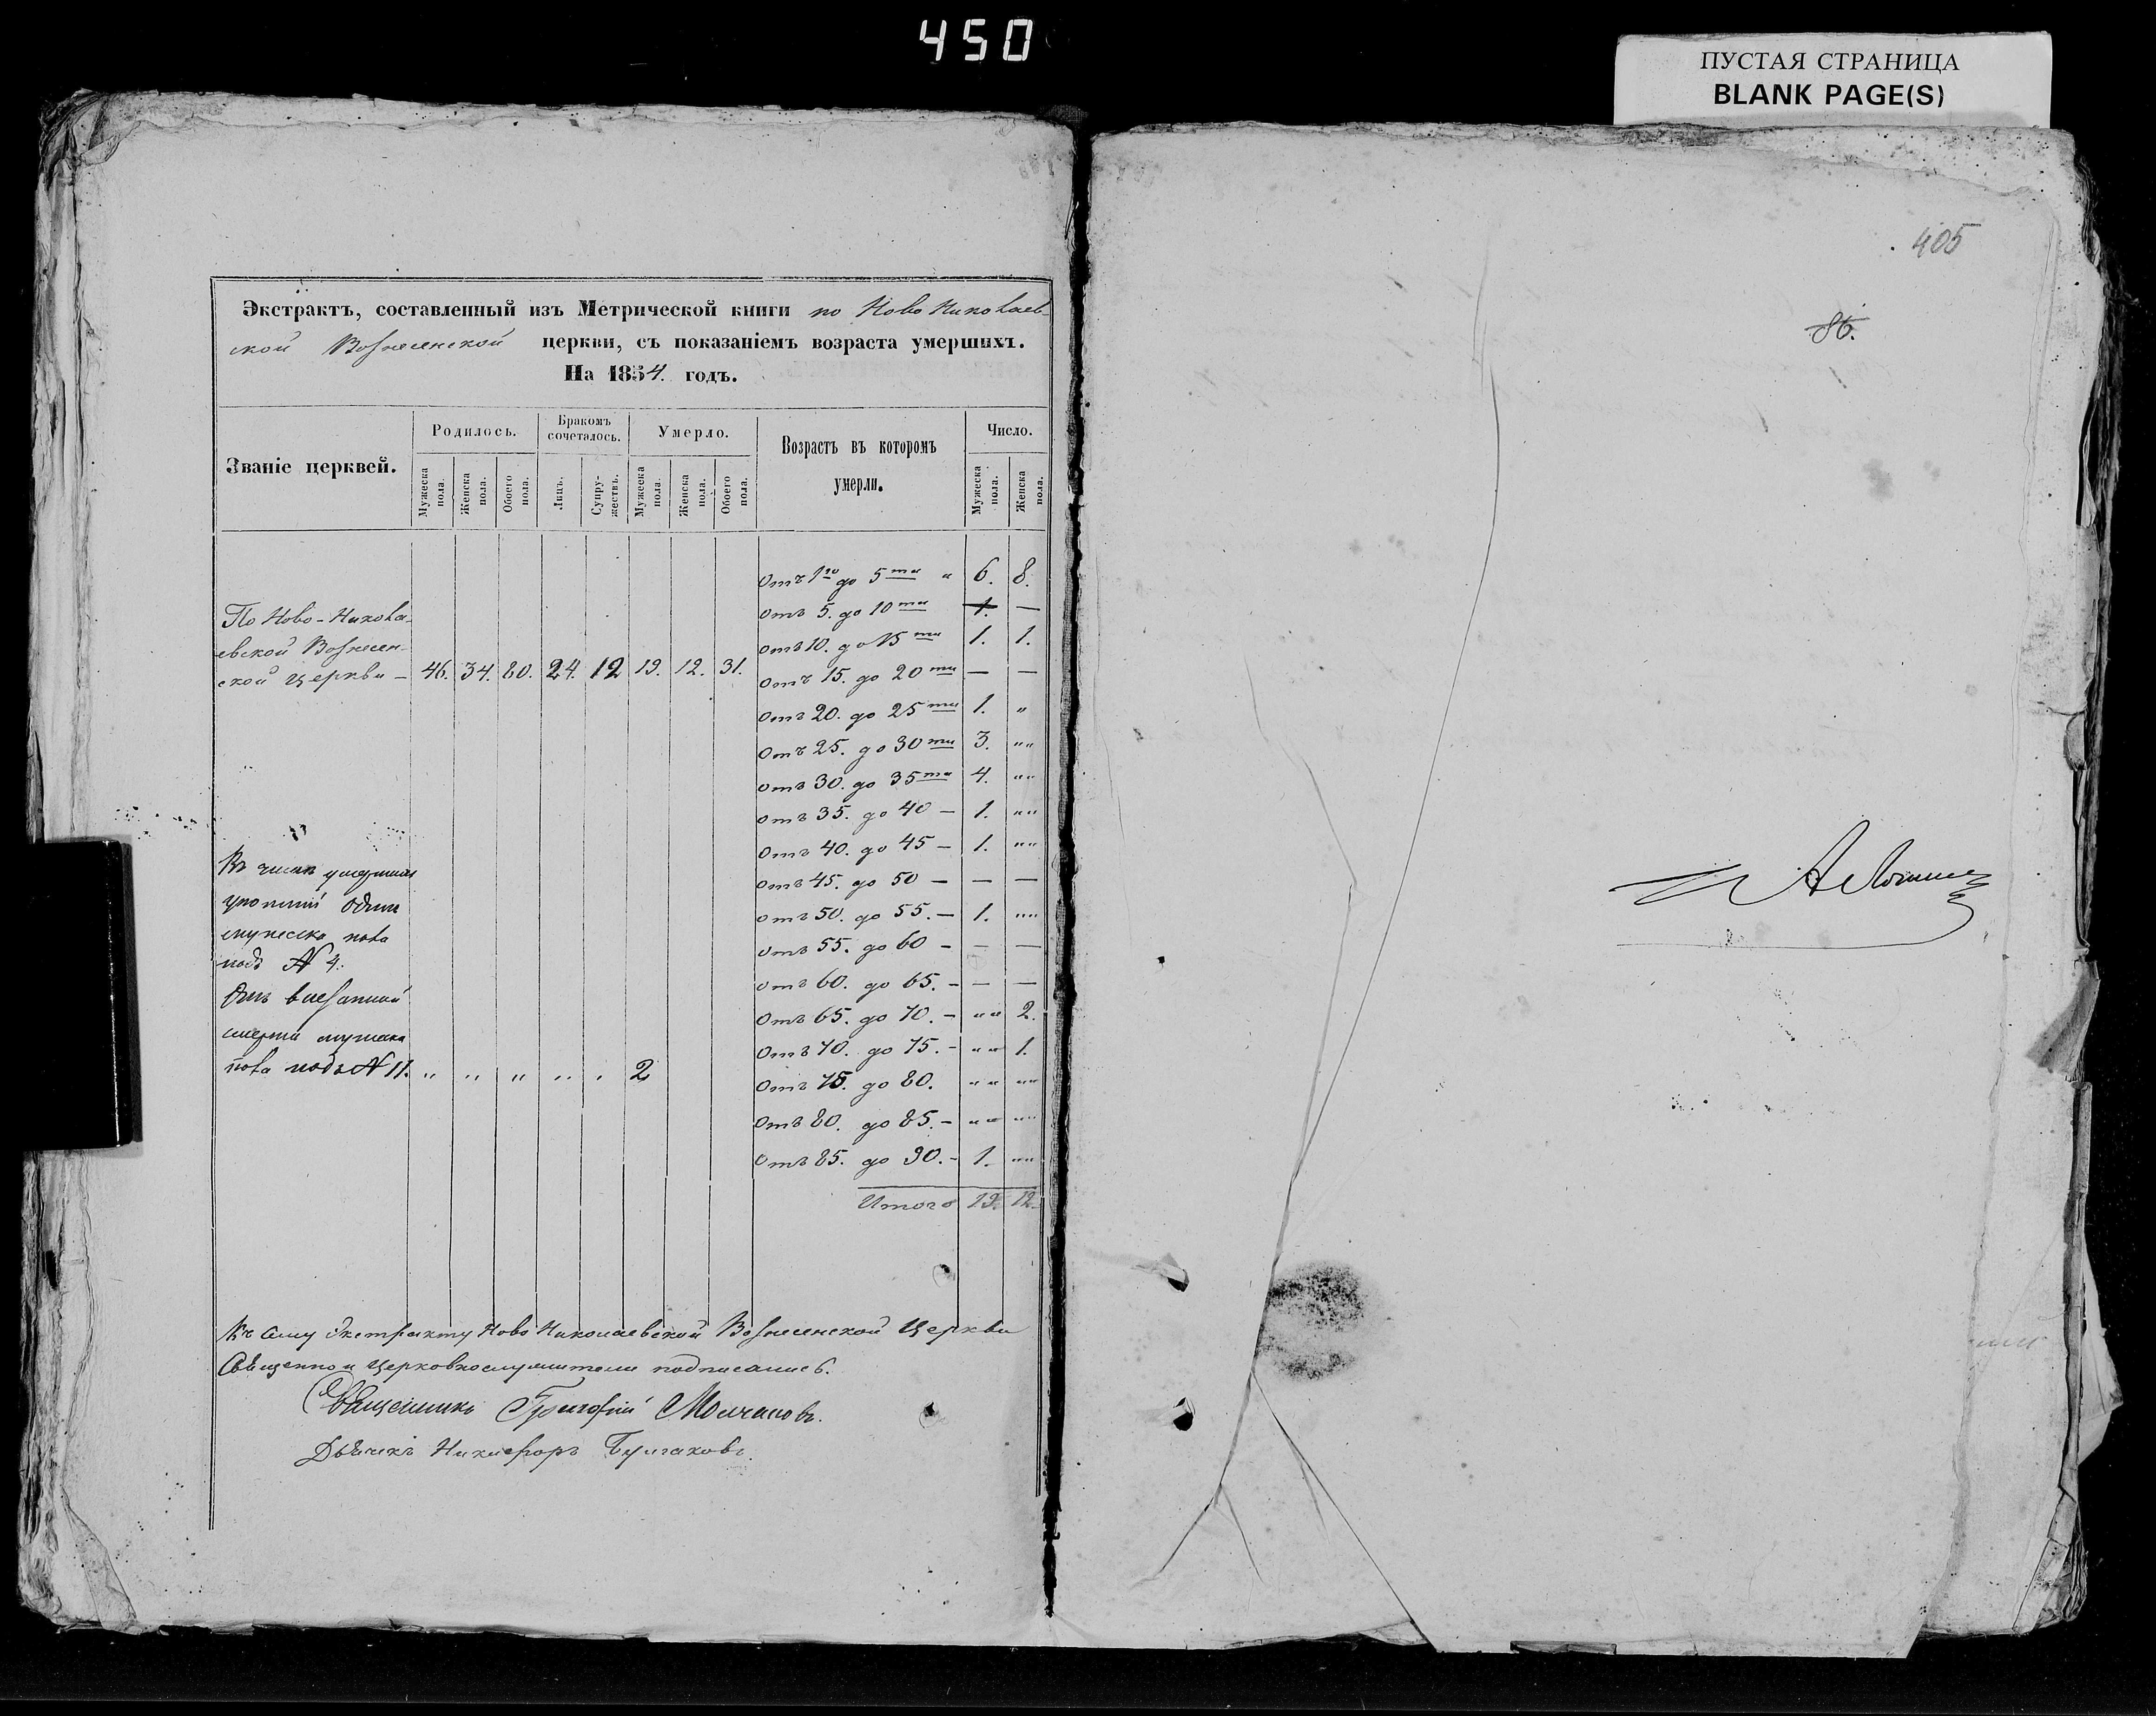 450
ПУСТАЯ СТРАНИЦА
BLANK PAGE(S)
405
86.
Экстрактъ, составленный изъ Метрической книги по Ново Николаев-
ской Вознесенской церкви, съ показаніемъ возраста умершихъ.
На 1854. годъ.
Званіе церквей.
Родилось.
Бракомъ сочеталось.
Умерло.
Возрастъ въ которомъ умерли.
Число.
Мужеска пола.
Женска пола.
Обоего пола.
Лицъ.
Супружествъ.
Мужеска пола.
Женска пола.
Обоего пола.
Мужеска пола.
Женска пола.
По Ново-Никола-
евской Вознесен-
ской Церкви – 46. 34. 80. 24. 12 19. 12. 31.
Отъ 1го до 5ти " 6. 8.
отъ 5. до 10ти 1. —
отъ 10. до 15ти 1. 1.
отъ 15. до 20ти — —
отъ 20. до 25ти 1. "
отъ 25. до 30ти 3. ""
отъ 30. до 35ти 4. ""
отъ 35. до 40 – 1. ""
отъ 40. до 45 – 1. ""
отъ 45. до 50 – — —
отъ 50. до 55. – 1. ""
отъ 55. до 60 – — —
отъ 60. до 65. – — —
отъ 65. до 70. – "" 2.
отъ 70. до 75. – "" 1.
отъ 75. до 80. "" ""
отъ 80. до 85. – "" ""
отъ 85. до 90. – 1. ""
Итого 19. 12.
Въ числѣ умершихъ
один
мужеска пола
подъ № 4.
Отъ внезапной
смерти мужска
пола подъ № 11. " " " " " 2
Къ сему Экстракту Ново Николаевской Вознесенской Церкви
Священно и церковнослужители подписались.
Священникъ Григорій Молчановъ.
Дьячекъ Никифоръ Булгаковъ.